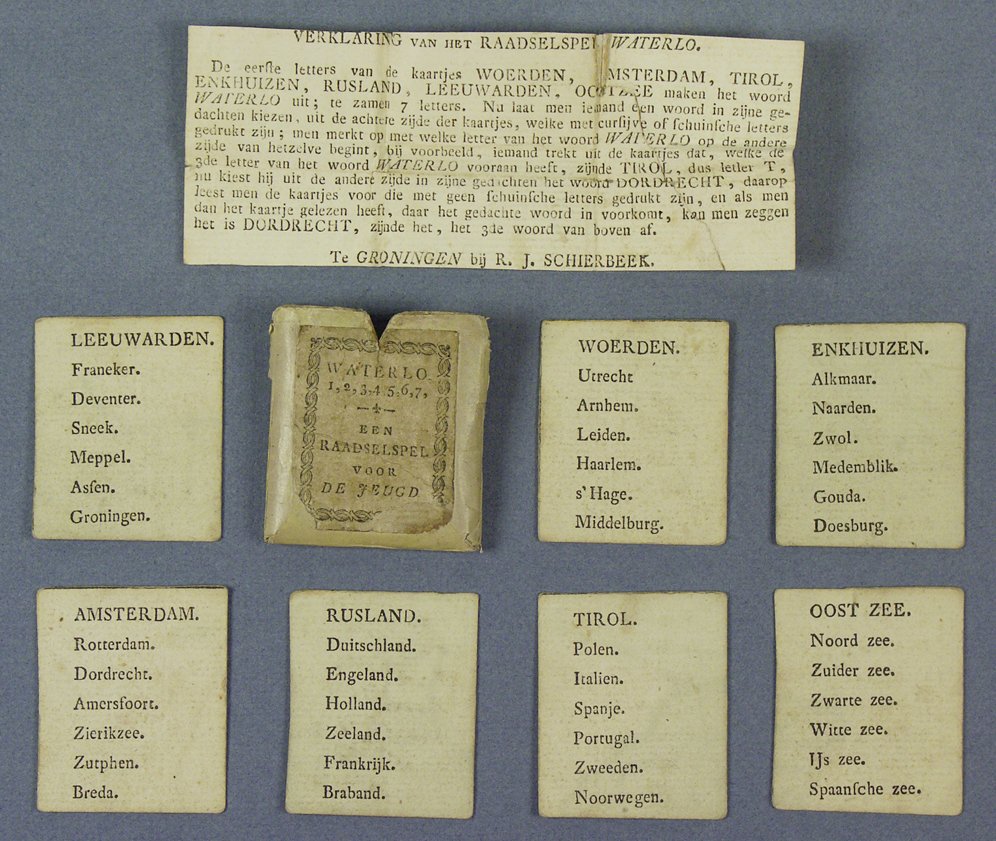 VERKLARING VAN HET RAADSELSPEL WATERLO.
De eerſte letters van de kaartjes WOERDEN, AMSTERDAM, TIROL,
ENKHUIZEN, RUSLAND, LEEUWARDEN, OOSTZEE maken het woord
WATERLO uit; te zamen 7 letters. Nu laat men iemand een woord in zijne ge-
dachten kiezen, uit de achtere zijde der kaartjes, welke met curſijve of ſchuinſche letters
gedrukt zijn; men merkt op met welke letter van het woord WATERLO op de andere
zijde van hetzelve begint, bij voorbeeld, iemand trekt uit de kaartjes dat, welke de
3de letter van het woord WATERLO vooraan heeft, zijnde TIROL, dus letter T,
nu kiest hij uit de andere zijde in zijne gedachten het woord DORDRECHT, daarop
leest men de kaartjes voor die met geen ſchuinſche letters gedrukt zijn, en als men
dan het kaartje gelezen heeft, daar het gedachte woord in voorkomt, kan men zeggen
het is DORDRECHT, zijnde het, het 3de woord van boven af.
Te GRONINGEN bij R. J. SCHIERBEEK.
LEEUWARDEN.
Franeker.
Deventer.
Sneek.
Meppel.
Asſen.
Groningen.
WATERLO
1,2,3,4,5,6,7,
EEN
RAADSELSPEL
VOOR
DE JEUGD
WOERDEN.
Utrecht
Arnhem.
Leiden.
Haarlem.
s'Hage.
Middelburg.
ENKHUIZEN.
Alkmaar.
Naarden.
Zwol.
Medemblik.
Gouda.
Doesburg.
AMSTERDAM.
Rotterdam.
Dordrecht.
Amersfoort.
Zierikzee.
Zutphen.
Breda.
RUSLAND.
Duitschland.
Engeland.
Holland.
Zeeland.
Frankrijk.
Braband.
TIROL.
Polen.
Italien.
Spanje.
Portugal.
Zweeden.
Noorwegen.
OOST ZEE.
Noord zee.
Zuider zee.
Zwarte zee.
Witte zee.
IJs zee.
Spaanſche zee.